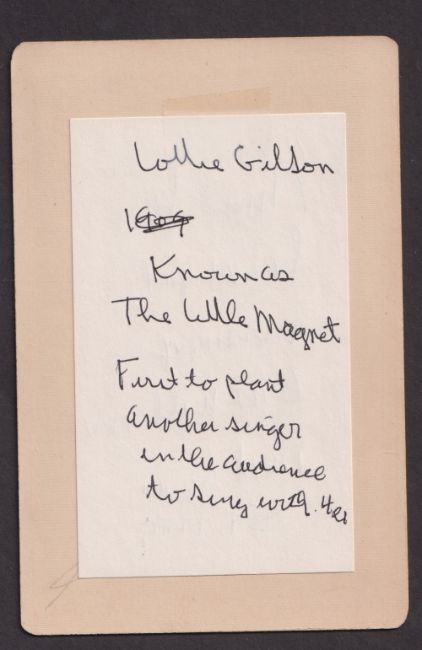 Lottie Gilson
Known as
The Little Magnet
First to plant
another singer
in the audience
to sing with her